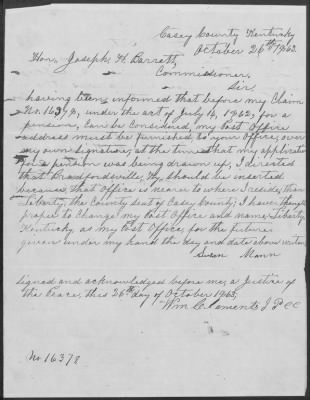 Casey County Kentucky
October 26th 1863.
Hon. Joseph H. Barrett,
Commissioner,
Sir,
having been informed that before my Claim
No. 16378, under the act of July 14, 1862, for a
pension, can be considered, my Post Office
address must be furnished to your Office, over
my own signature; at the time that my application
for a pension was being drawn up, I directed
that Bradfordsville, Ky. should be inserted
because, that Office is nearer to where I reside, than
Liberty, the County seat of Casey County; I have thought
proper to Change my Post Office and name Liberty
Kentucky as my Post Office for the future
given under my hand the day and date above written
Susan Mann
signed and acknowledged before me, a Justice of
the Peace, this 26th day of October 1863,
Wm Clements J P C C
No. 16378